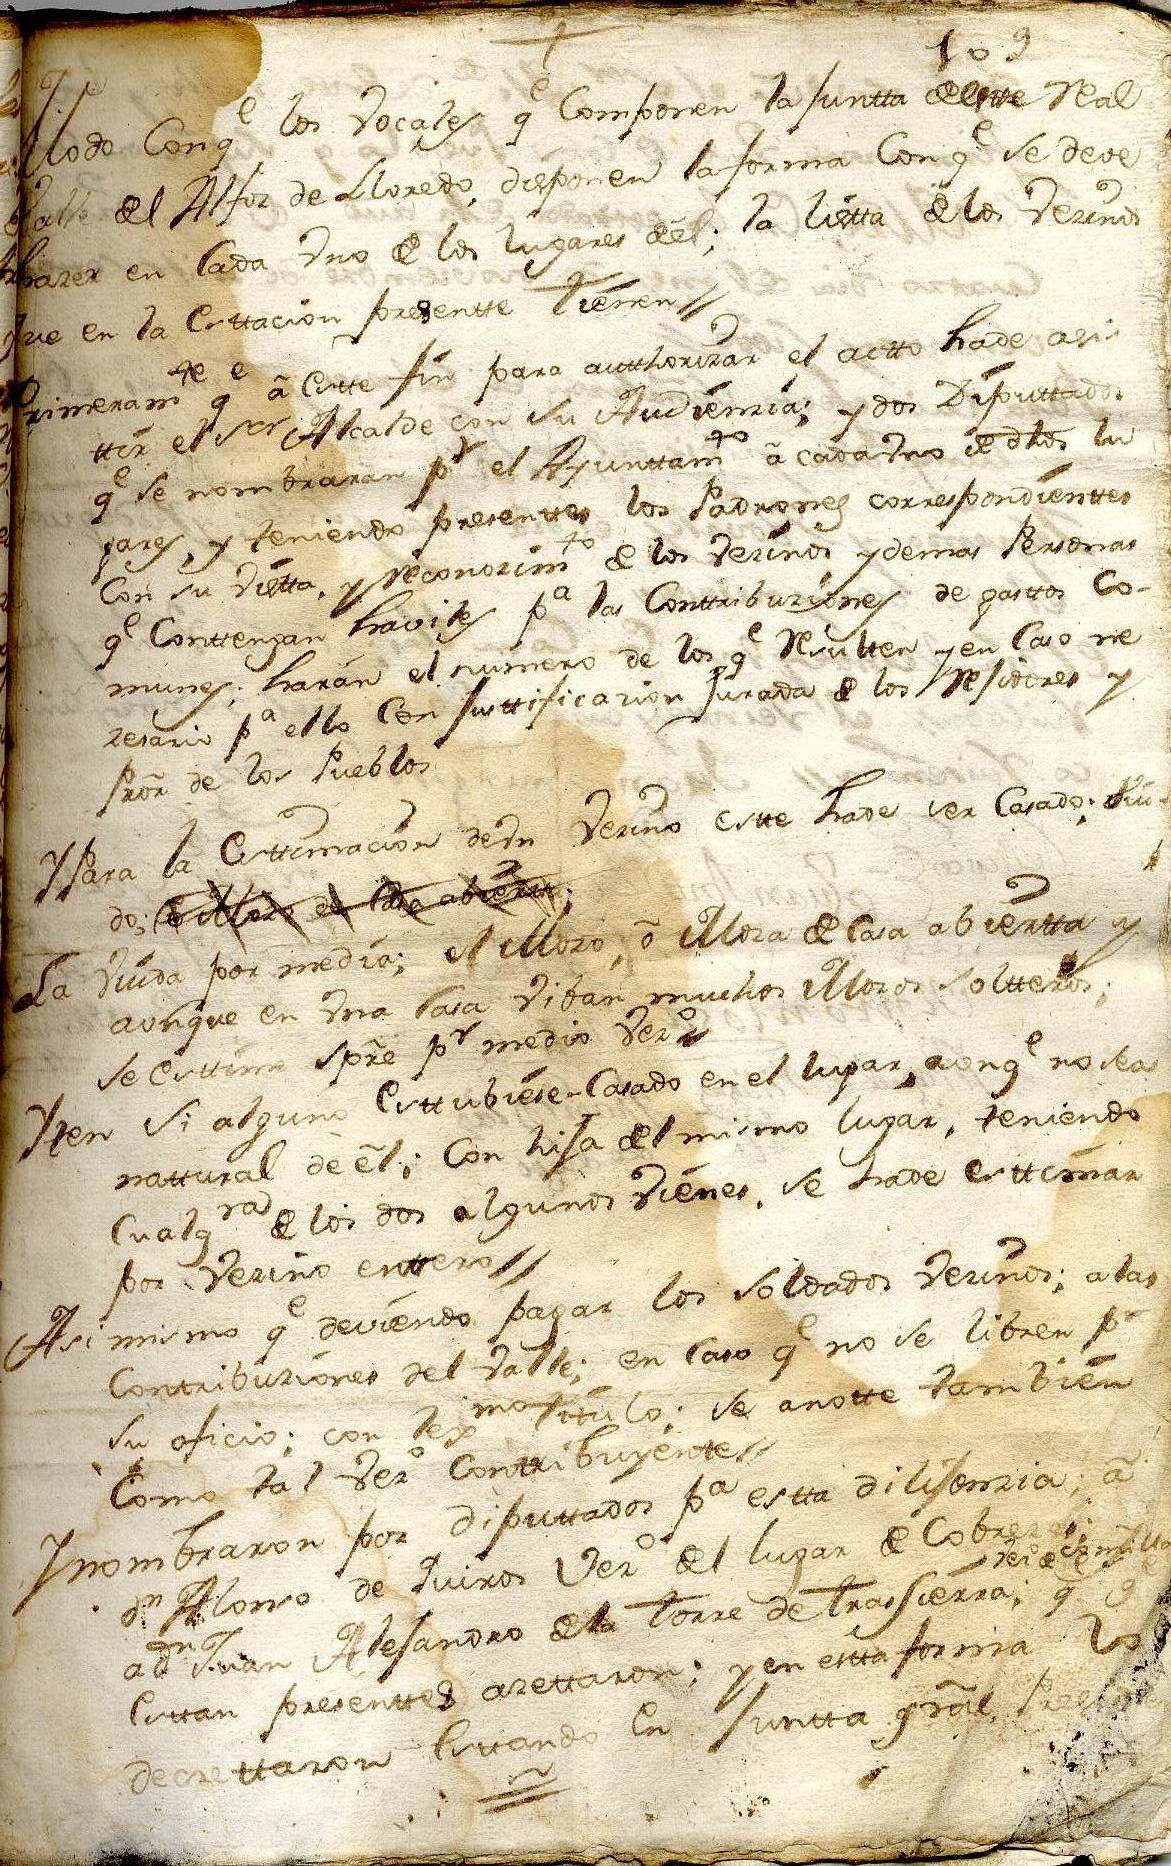 109
Modo Con qe los Vocales qe Componen la Juntta de este Real
Valle del Alfoz de Lloredo, disponen la forma Con qe se deve
hazer en Cada Vno de los lugares dél; la listta de los Vezinos
que en la Esttacion presentte tienen//
Primeramte qe â estte fin para autthorizar el actto hade asis
ttir el sor Alcalde con su Audienzia; y dos Diputtados
qe se nombraran pr el Ayunttamto â cada Vno de dhos lu
gares, y teniendo presenttes los Padrones correspondienttes
Con su Vistta, y reconozimto de los Vezinos y demas Personas
qe Conttengan haviles pa las Conttribuziones de gasttos Co-
munes; harán el número de los qe Resultten y en Caso ne
zesario pa ello Con Justtificazion Jurada de los Rejidores y
Pror de los Pueblos
Y Para la Esttimacion de Vn Vezino estte hade ser Casado; Viu-
do; ô Mozo de Casa abierta;
La Viuda por media; el Mozo, ô Moza de Casa abiertta y
aunque en Vna Casa Viban muchos Mozos soltteros;
se Esttime spre pr medio Vezo
Yten si alguno Esttubiese Casado en el lugar, aonqe no sea
nattural de él; Con hija del mismo lugar, teniendo
Cualqra de los dos algunos Vienes, se hade esttimar
por Vezino enttero//
Asi mismo qe deviendo pagar los soldados Vezinos; a las
Contribuziones del Valle; en Caso qe no se libren pr
su oficio; con lexmo titulo; se anotte tambien
Como tal Vezo Conttribuyentte//
Y nombraron por diputtados pa estta dilijenzia, â
dn Alonso de Quiros Vezo del lugar de Cobrezes;
a dn Juan Alejandro de la Torre de Trassierra; qe
Esttan presenttes azettaron; y en estta forma lo
decrettaron Esttando En Juntta gral